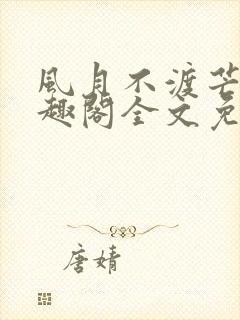 風月不渡芒
趣閣全文免
唐婧